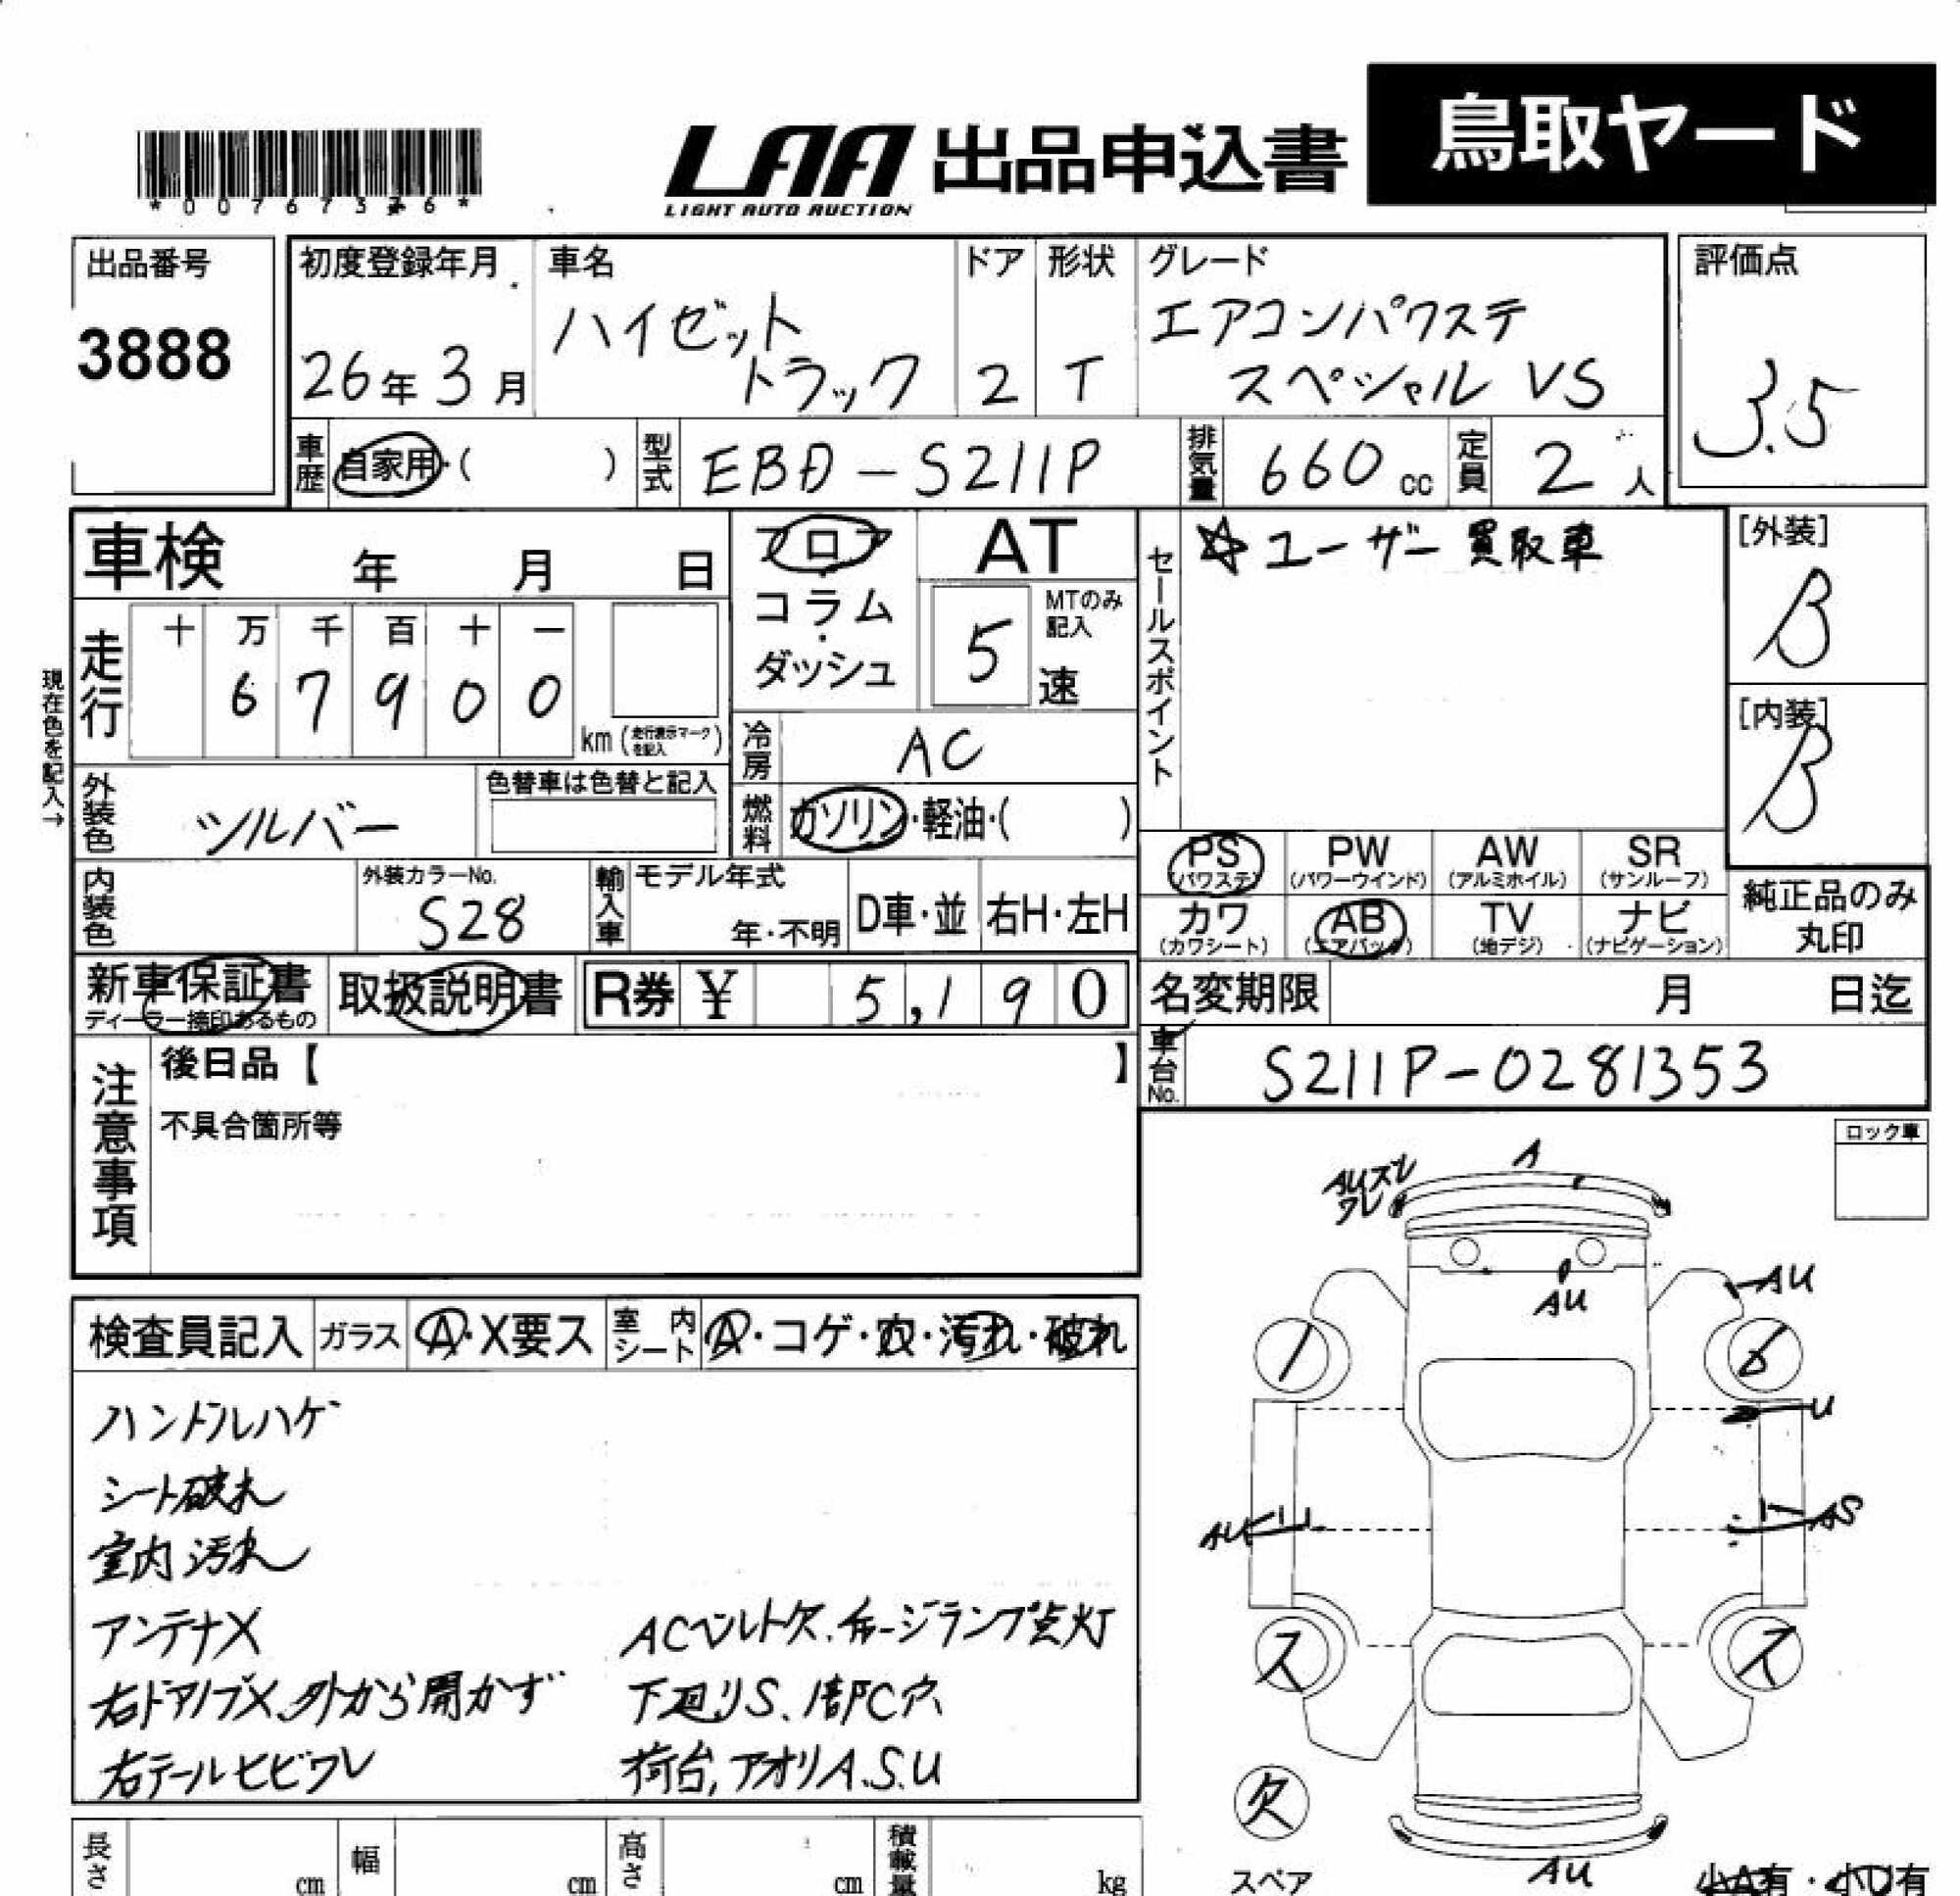 鳥取ヤード
LAA 出品申込書
LIGHT AUTO AUCTION
*00767376*
出品番号
3888
初度登録年月
26年3月
車名
ハイゼット
トラック
ドア
2
形状
T
グレード
エアコンパワステ
スペシャル VS
評価点
3.5
車歴
自家用・( )
型式
EBD-S211P
排気量
660 cc
定員
2 人
車検 年 月 日
フロア
・
コラム
・
ダッシュ
AT
5
MTのみ
記入
速
セールスポイント
☆ユーザー買取車
[外装]
B
[内装]
B
現在色を記入→
走行
十 万 千 百 十 一
6 7 9 0 0
km (走行表示マークを記入)
冷房
AC
外装色
シルバー
色替車は色替と記入
燃料
ガソリン・軽油・( )
PS
(パワステ)
PW
(パワーウインド)
AW
(アルミホイル)
SR
(サンルーフ)
カワ
(カワシート)
AB
(エアバック)
TV
(地デジ)
ナビ
(ナビゲーション)
純正品のみ
丸印
内装色
外装カラーNo.
S28
輸入車
モデル年式
年・不明
D車・並
右H・左H
新車保証書
ディーラー捺印あるもの
取扱説明書
R券 ¥ 5,190
名変期限 月 日迄
車台No.
S211P-0281353
注意事項
後日品【 】
不具合箇所等
ロック車
検査員記入
ガラス
A・X要ス
室内
シート
A・コゲ・穴・汚れ・破れ
ハンドルハゲ
シート破れ
室内汚れ
アンテナX
右ドアノブX、外から開かず
右テールヒビワレ
ACベルト欠、チャージランプ点灯
下廻りS、1部C穴
荷台,アオリA.S.U
A
AUスレ
ワレ
AU
AU
U
AU
AS
ス
ス
欠
スペア
AU
小A有・小U有
長さ
cm
幅
cm
高さ
cm
積載量
kg